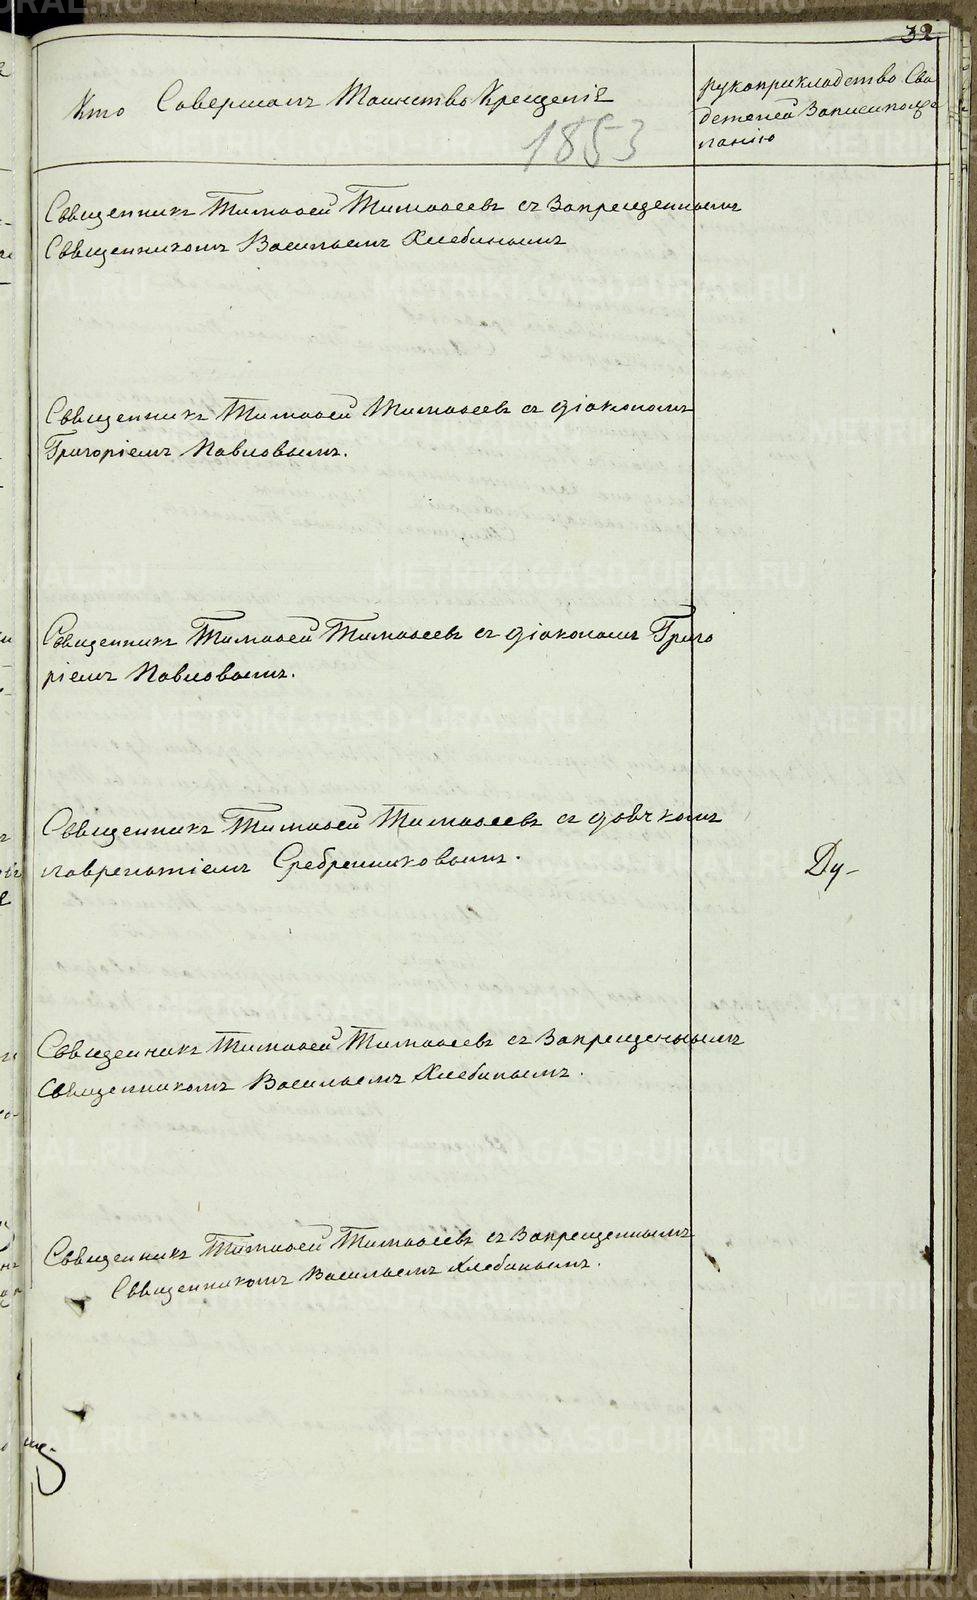 32
Кто Совершалъ Таинство Крещенiя
1853
рукоприкладство Сви
детелей Записи пожела
нiю
Священникъ Тимофей Тимофеевъ съ Запрещеннымъ
Священникомъ Васильемъ Хлебинымъ
Священникъ Тимофей Тимофеевъ съ дiакономъ
Григорiемъ Павловымъ.
Священникъ Тимофей Тимофеевъ съ дiакономъ Григо
рiемъ Павловымъ.
Священникъ Тимофей Тимофеевъ съ дьячкомъ
лаврентiемъ Сребренниковымъ.
Ду-
Священникъ Тимофей Тимофеевъ съ Запрещеннымъ
Священникомъ Васильемъ Хлебинымъ.
Священникъ Тимофей Тимофеевъ съ Запрещеннымъ
Священникомъ Васильемъ Хлебинымъ.
METRIKI.GASO-URAL.RU